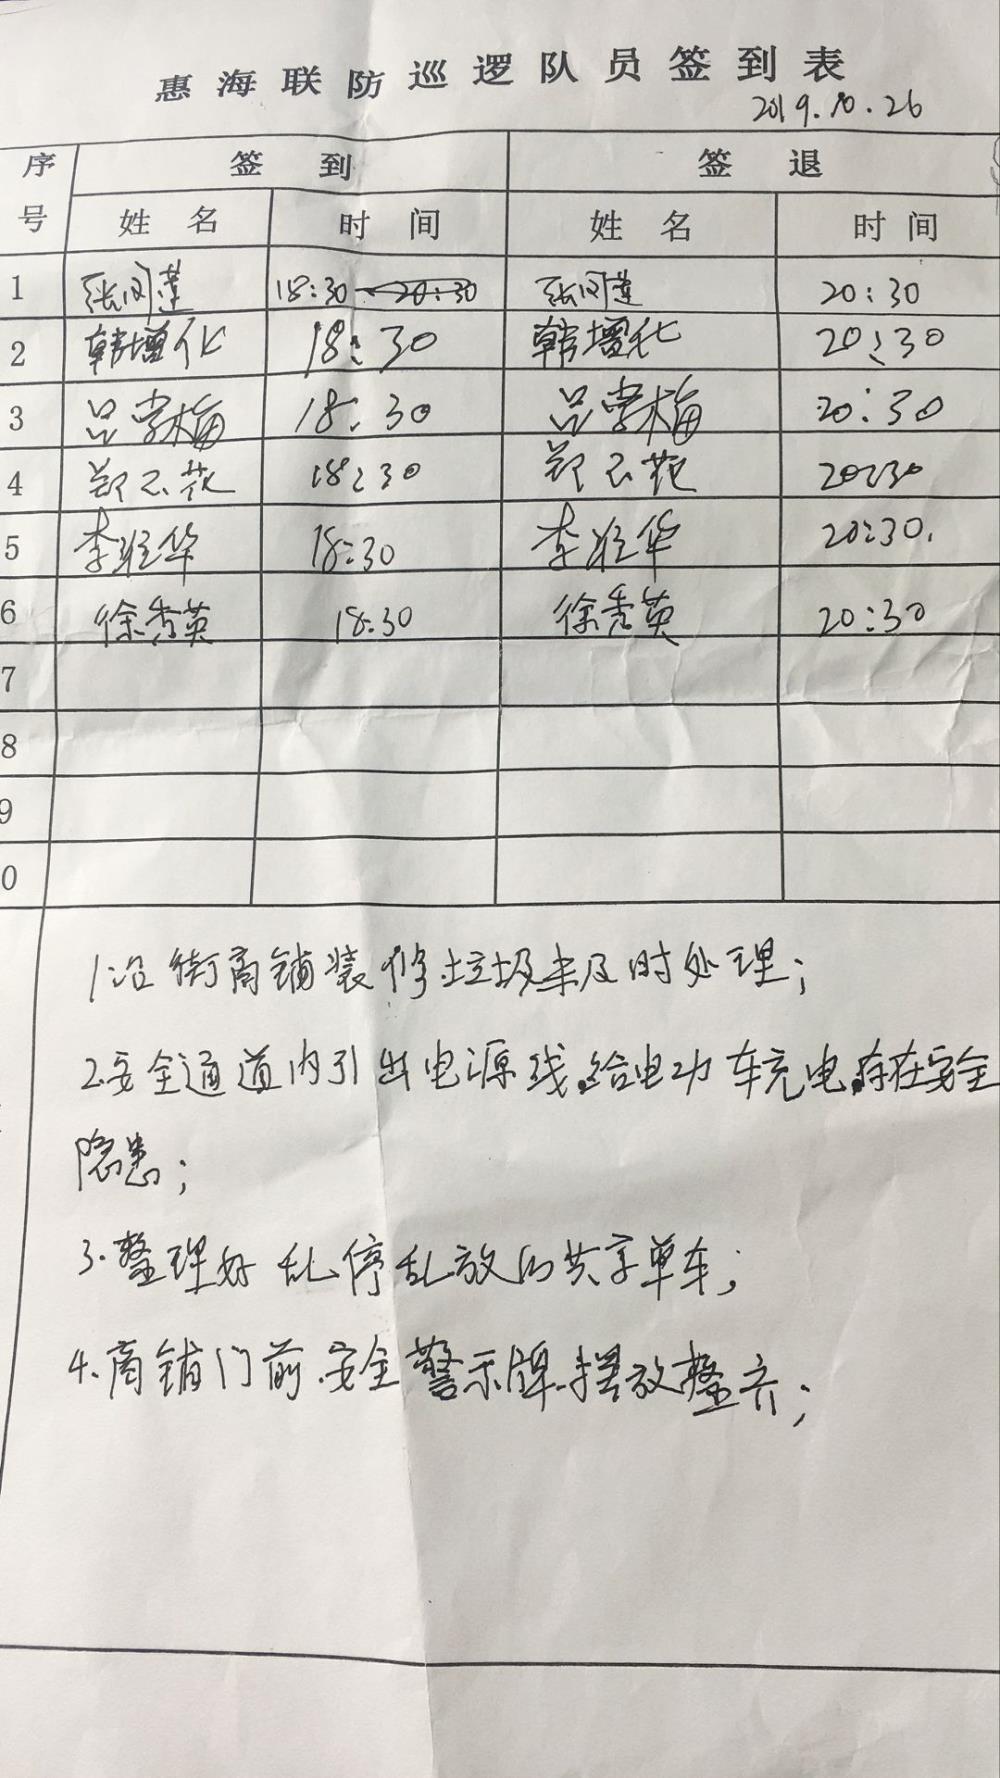 惠海联防巡逻队员签到表
2019.10.26
序号 签到 签退
姓名 时间 姓名 时间
1 张闪莲 18:30 张闪莲 20:30
2 韩增化 18:30 韩增化 20:30
3 吕学梅 18:30 吕学梅 20:30
4 郑云花 18:30 郑云花 20:30
5 李壮华 18:30 李壮华 20:30.
6 徐秀英 18:30 徐秀英 20:30
7
8
9
0
1.沿街商铺装修垃圾未及时处理;
2.安全通道内引出电源线,给电动车充电,存在安全
隐患;
3.整理好乱停乱放的共享单车;
4.商铺门前安全警示牌摆放整齐;